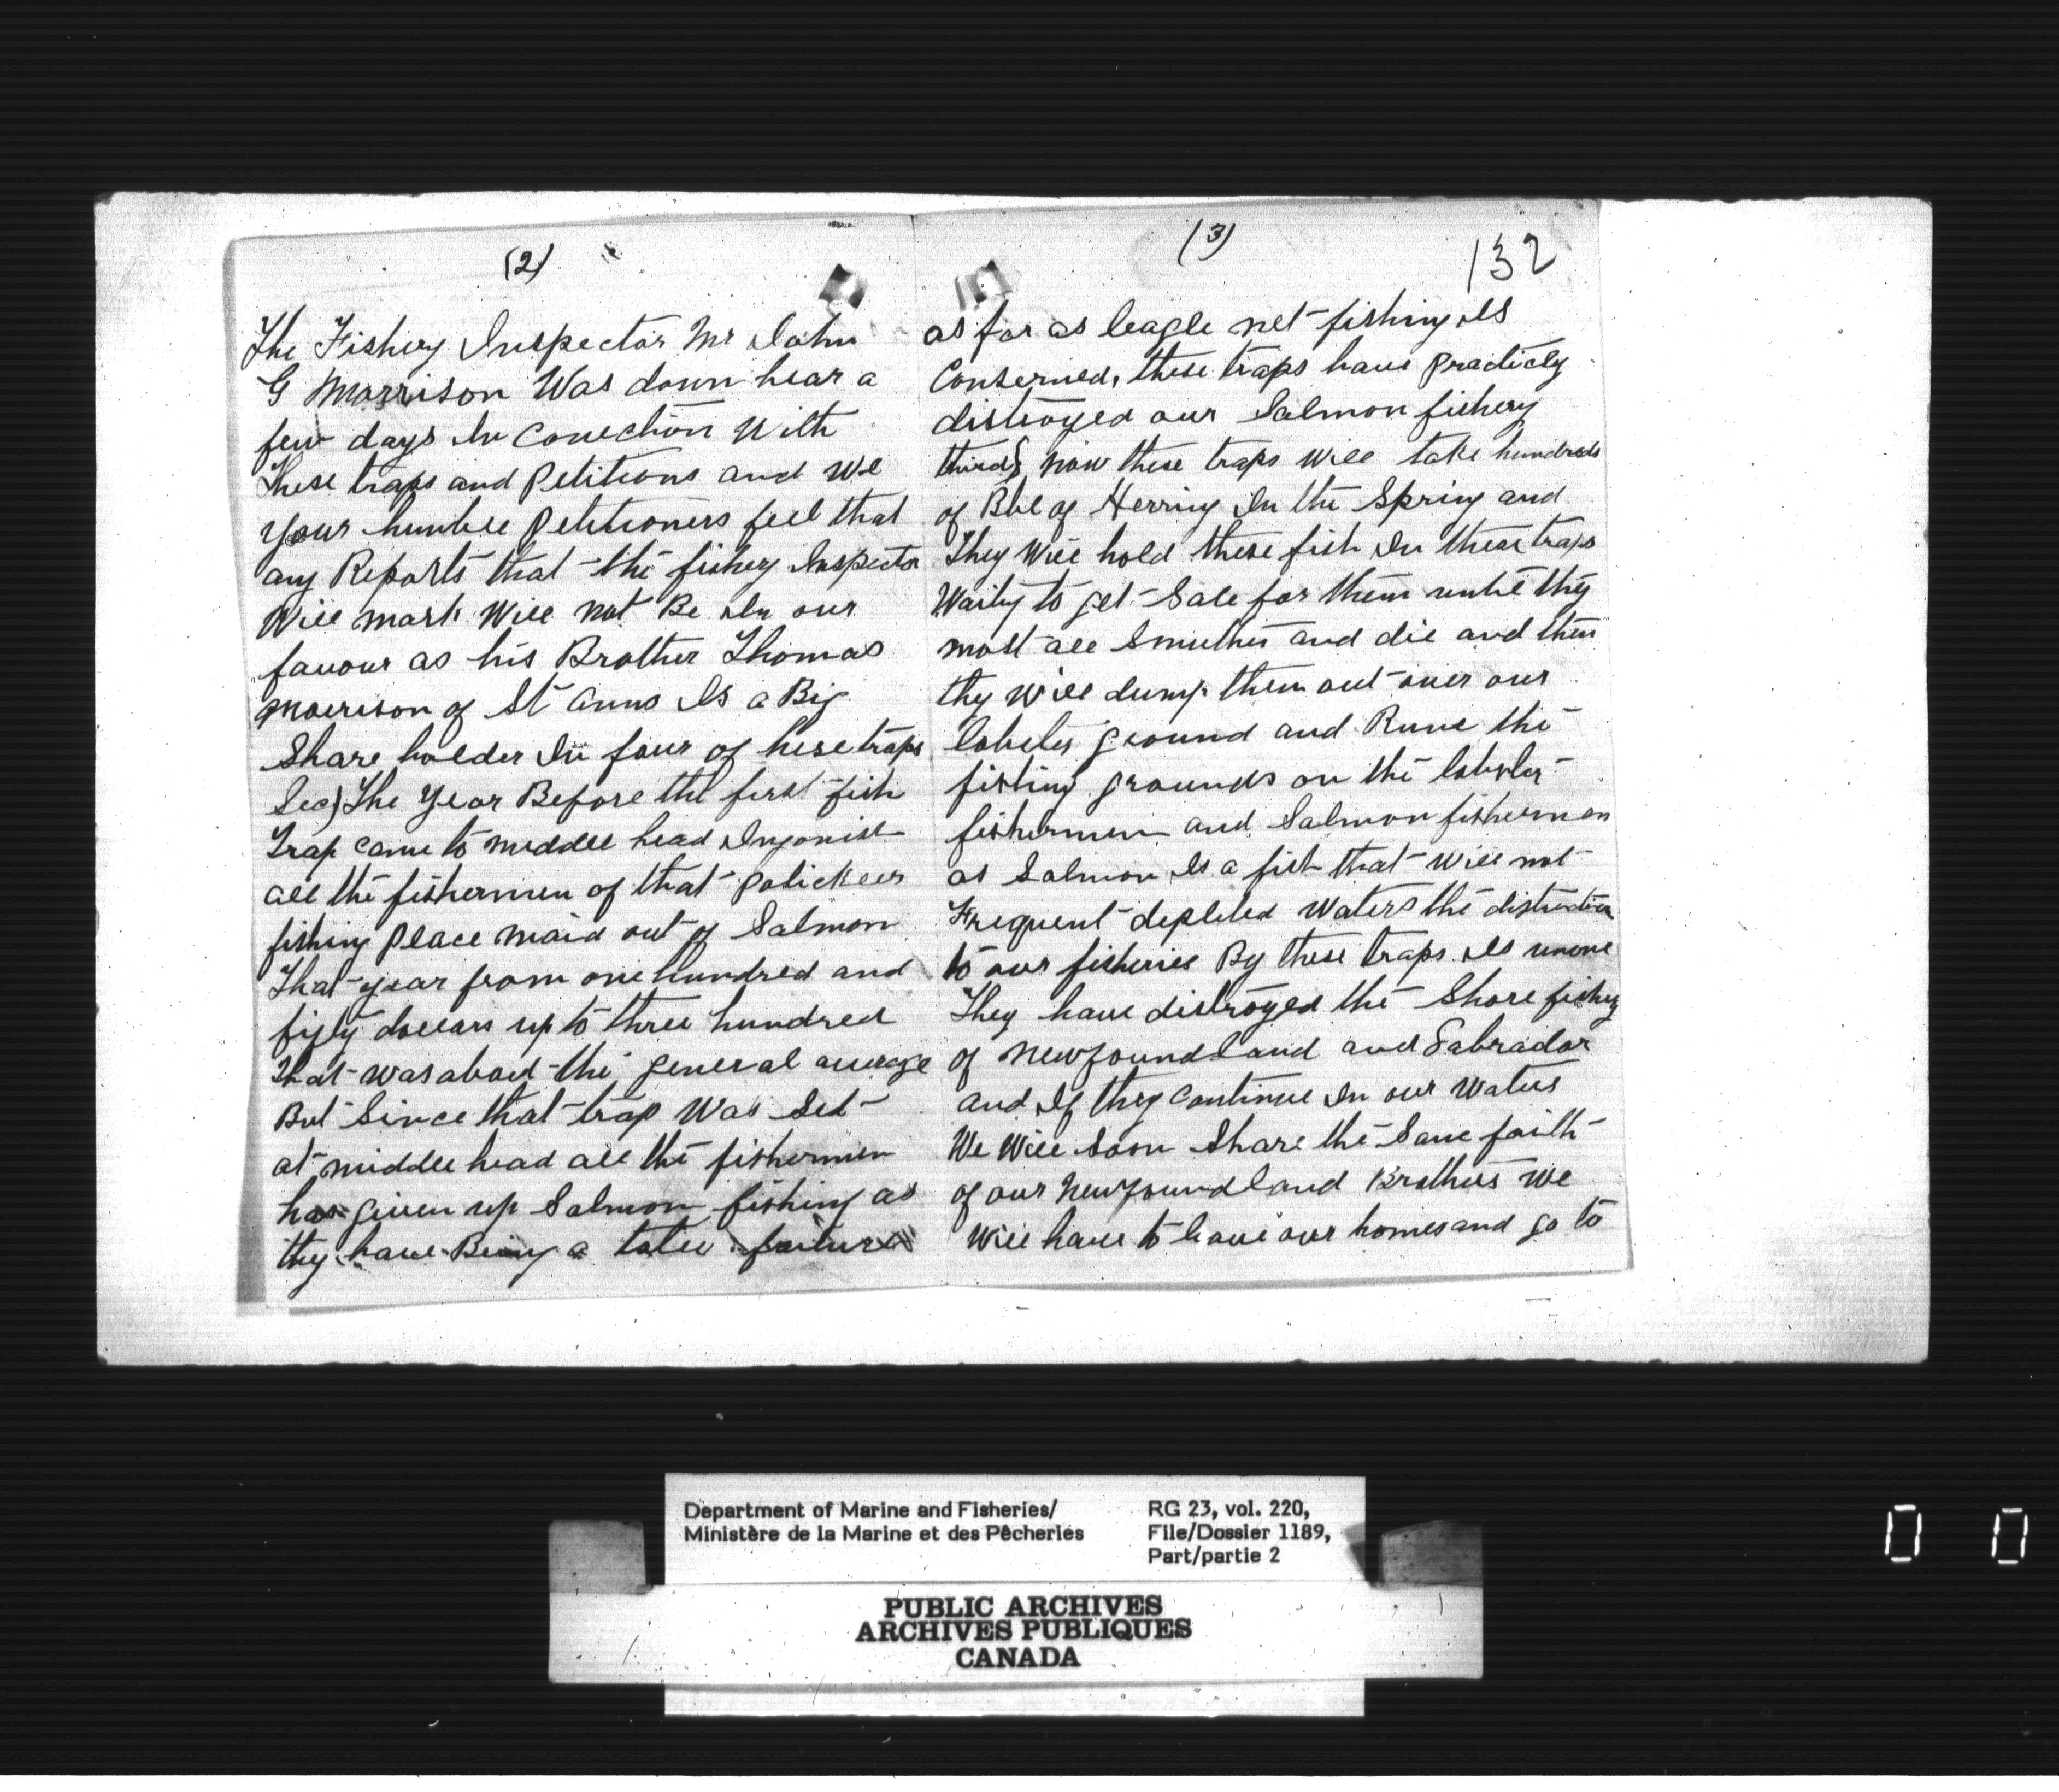 (2)
The Fishery Inspector Mr John
G Morrison Was down hear a
few days In Conection With
These traps and Petitions and We
your humble Petitioners feel that
any Reports that the fishey Inspector
Will mark Will not Be In our
favour as his Brother Thomas
Morrison of St anns Is a Big
Share holder In four of hese traps
Sec) The Year Before the first fish
Trap came to middle head Ingonish
all the fishermen of that
fishing Place maid out of Salmon
That year from one hundred and
fifty dollars up to three hundred
that was about the general average
But Since that trap Was Set
at middle head all the fishermen
has given up Salmon fishing as
thy have Being a totle failure
(3)
132
as far as leagle net fishing Is
Conserned, these traps have Practicly
distroyed our Salmon fishery
third) now these traps will take hundreds
of Bbl of Herring In the Spring and
They Will hold these fish In these traps
Waity to get Sale for them untie they
most all Smuther and die and then
thy will dump them out over our
lobster ground and Ruve the
fishing grounds on the lobster
fishermen and Salmon fishermen
as Salmon Is a fish that will not
Frequent depleted Waters the distruction
to our fisheries By these traps Is
They have distroyed the Shore fishey
of Newfoundland and Labrador
and If they Continue In our Waters
We Will Soon Share the Same faith
of our Newfoundland Brothers We
Will have to leave our homes and go to
Department of Marine and Fisheries/
Ministère de la Marine et des Pêcheries
RG 23, vol. 220,
File/Dossier 1189,
Part/partie 2
PUBLIC ARCHIVES
ARCHIVES PUBLIQUES
CANADA
0 0